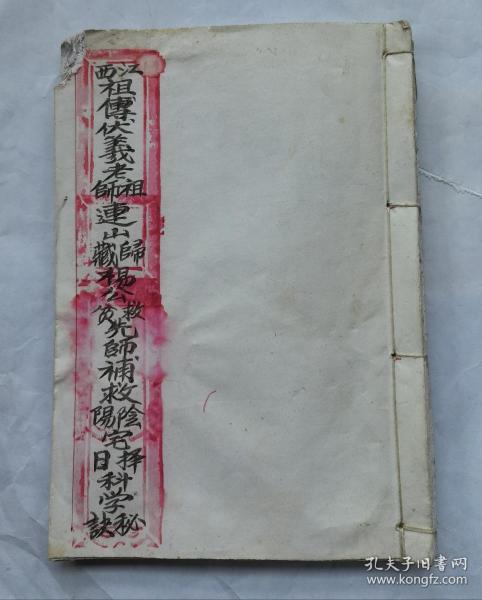 江西祖傳伏義老祖師連山歸藏楊公救貧先師補救陰陽宅择日科学秘訣
孔夫子旧书网
www.kongfz.com